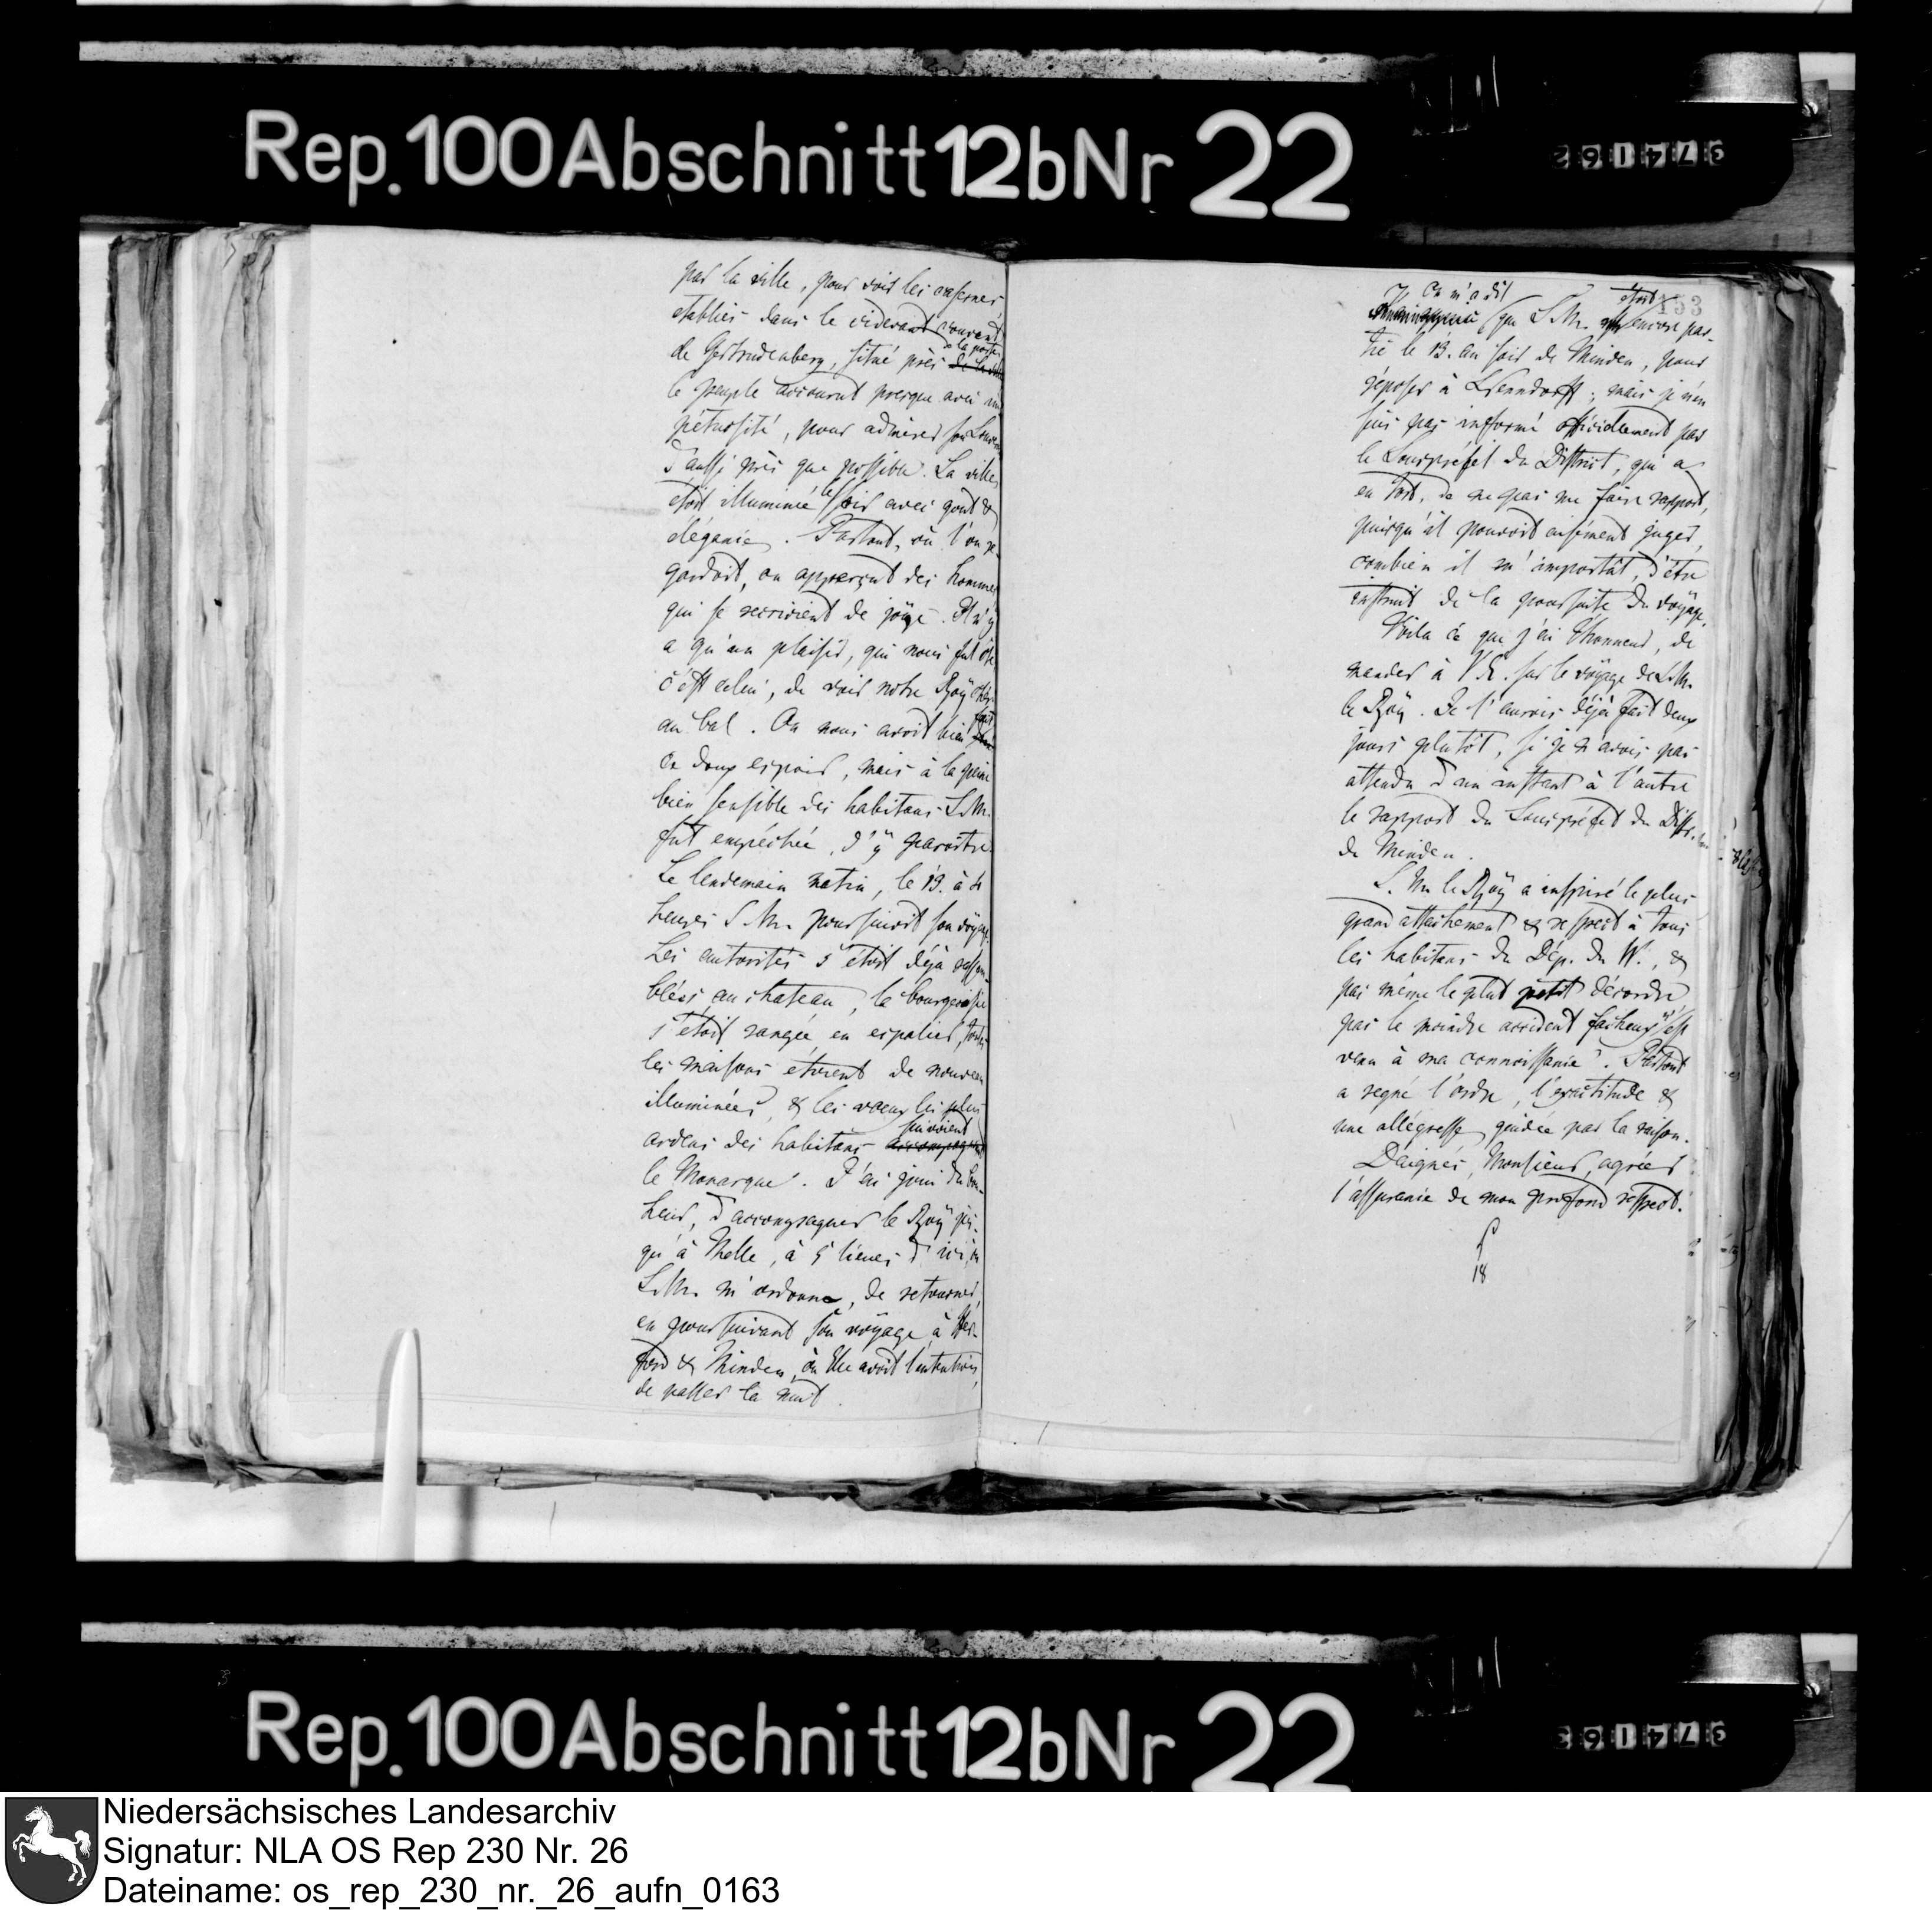 Rep. 100 Abschnitt 12b Nr 22
374162
par la ville, pour voir les casernes
etablies dans le cidevant couvent
de Gertrudenberg, situé près
à la porte
le peuple accourut presque avec im
pétuosité, pour admirer son Souve
d'aussi près que possible. La ville
etoit illuminée le soir avec gout &
élégance. Partout, où l'on re-
gardoit, on apperçut des hommes
qui se recrioient de joÿe. Il n'y
a qu'un plaisir, qui nous fut oté
c'est celui, de voir notre Roÿ chéri
au bal. On nous avoit bien fait
ce doux espoir, mais à la peine
bien sensible des habitans S. M.
fut empéchée, d'ÿ paroitre
Le lendemain matin, le 13. à 4
heures S. M. poursuivit son voÿage.
Les autorités s'étoit déjà assem-
blées au chateau, la bourgeoisie
s'étoit rangée en espalier, toutes
les maisons etoient de nouveau
illuminées, & les voeux les plus
suivoient
ardens des habitans accompagn
le Monarque. J'ai joui du bon-
heur, d'accompagner le Roÿ jus-
qu'à Melle, à 5 lieues d'ici, ou
S. M. m'ordonna, de retourner,
en poursuivant son voÿage à Her-
ford & Minden, où Elle avoit l'intention,
de passer la nuit.
153
On m'a dit
étoit
que S. M. encore par-
tie le 13. au soir de Minden, pour
réposer à Nenndorff; mais je n'en
suis pas informé officiellement par
le Sousprefet du District, qui a
eu tort, de ne pas me faire rapport,
puisqu'il pouvoit aisément juger,
combien il m'importât, d'être
instruit de la poursuite du voÿage.
Voila ce que j'ai l'honneur, de
mander à V. E. sur le voÿage de S. M.
le Roÿ. Je l'aurois déjà fait deux
jours plutôt, si je n'avois pas
attendu d'un instant à l'autre
le rapport du Sousprefet du Distr.
de Minden.
S. M. le Roÿ a inspiré le plus
grand attachement & respect à tous
les habitans du Dép. du W., &
pas même le plus petit désordre
pas le moindre accident facheux n'est
venu à ma connoissance. Partout
a regné l'ordre, l'exactitude &
une allégresse, guidée par la raison.
Daignés, Monsieur, agréer
l'assurance de mon profond respect.
18
Rep. 100 Abschnitt 12b Nr 22
374163
Niedersächsisches Landesarchiv
Signatur: NLA OS Rep 230 Nr. 26
Dateiname: os_rep_230_nr._26_aufn_0163